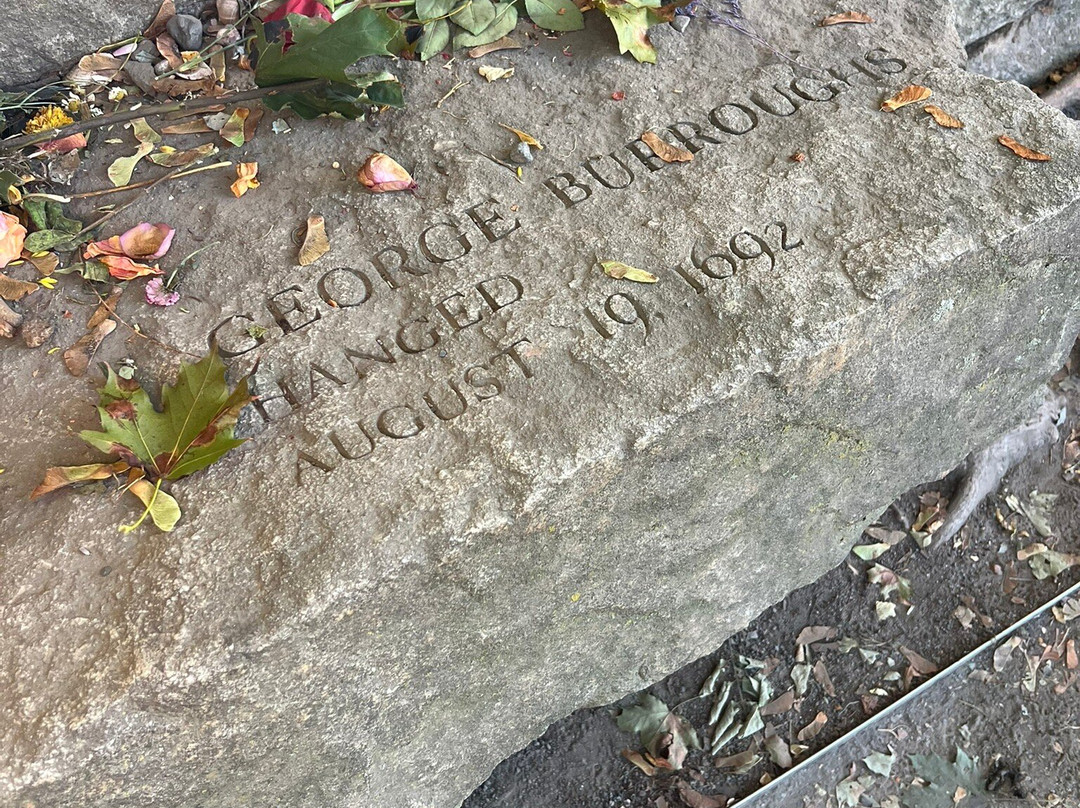 GEORGE BURROUGHS
HANGED
AUGUST 19, 1692